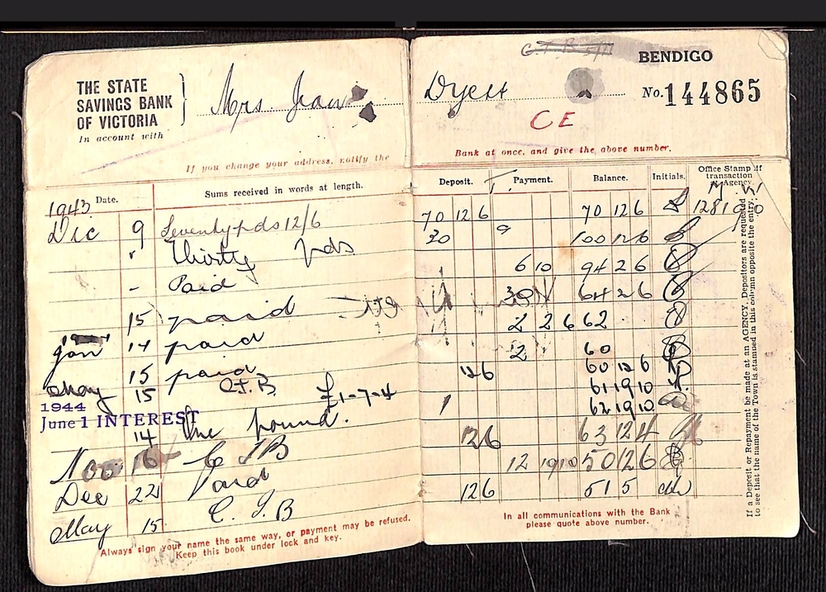 THE STATE
SAVINGS BANK
OF VICTORIA
In account with
Mrs. Jean Dyett
BENDIGO
No. 144865
CE
If you change your address, notify the Bank at once, and give the above number.
Date. Sums received in words at length. Deposit. Payment. Balance. Initials. Office Stamp if transaction at Agency.
1943
Dec 9 Seventy pds 12/6 70 12 6 70 12 6
" Thirty pds 30 100 12 6
- Paid 6 10 94 2 6
15 paid 30 64 2 6
Jan 14 paid 2 2 6 62
15 paid 2 60
May 15 C.I.B 12 6 60 12 6
1944
June 1 INTEREST £1-7-4 61 19 10
14 One pound. 1 62 19 10
Nov 16 C I B 12 6 63 12 4
Dec 22 Paid 12 19 10 50 12 6
May 15 C. I. B 12 6 51 5
Always sign your name the same way, or payment may be refused.
Keep this book under lock and key.
In all communications with the Bank
please quote above number.
If a Deposit or Repayment be made at an AGENCY, Depositors are requested
to see that the name of the Town is stamped in this column opposite the entry.